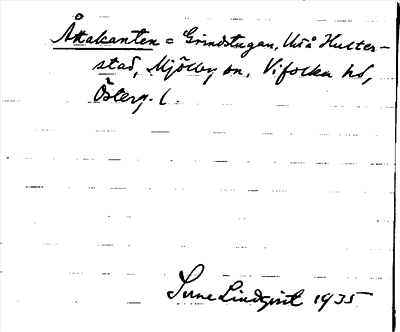 Åttakanten = Grindstugan, Uddå Hulter-
stad, Mjölby sn, Vifolka hd,
Österg. l.
Sune Lindqvist 1935